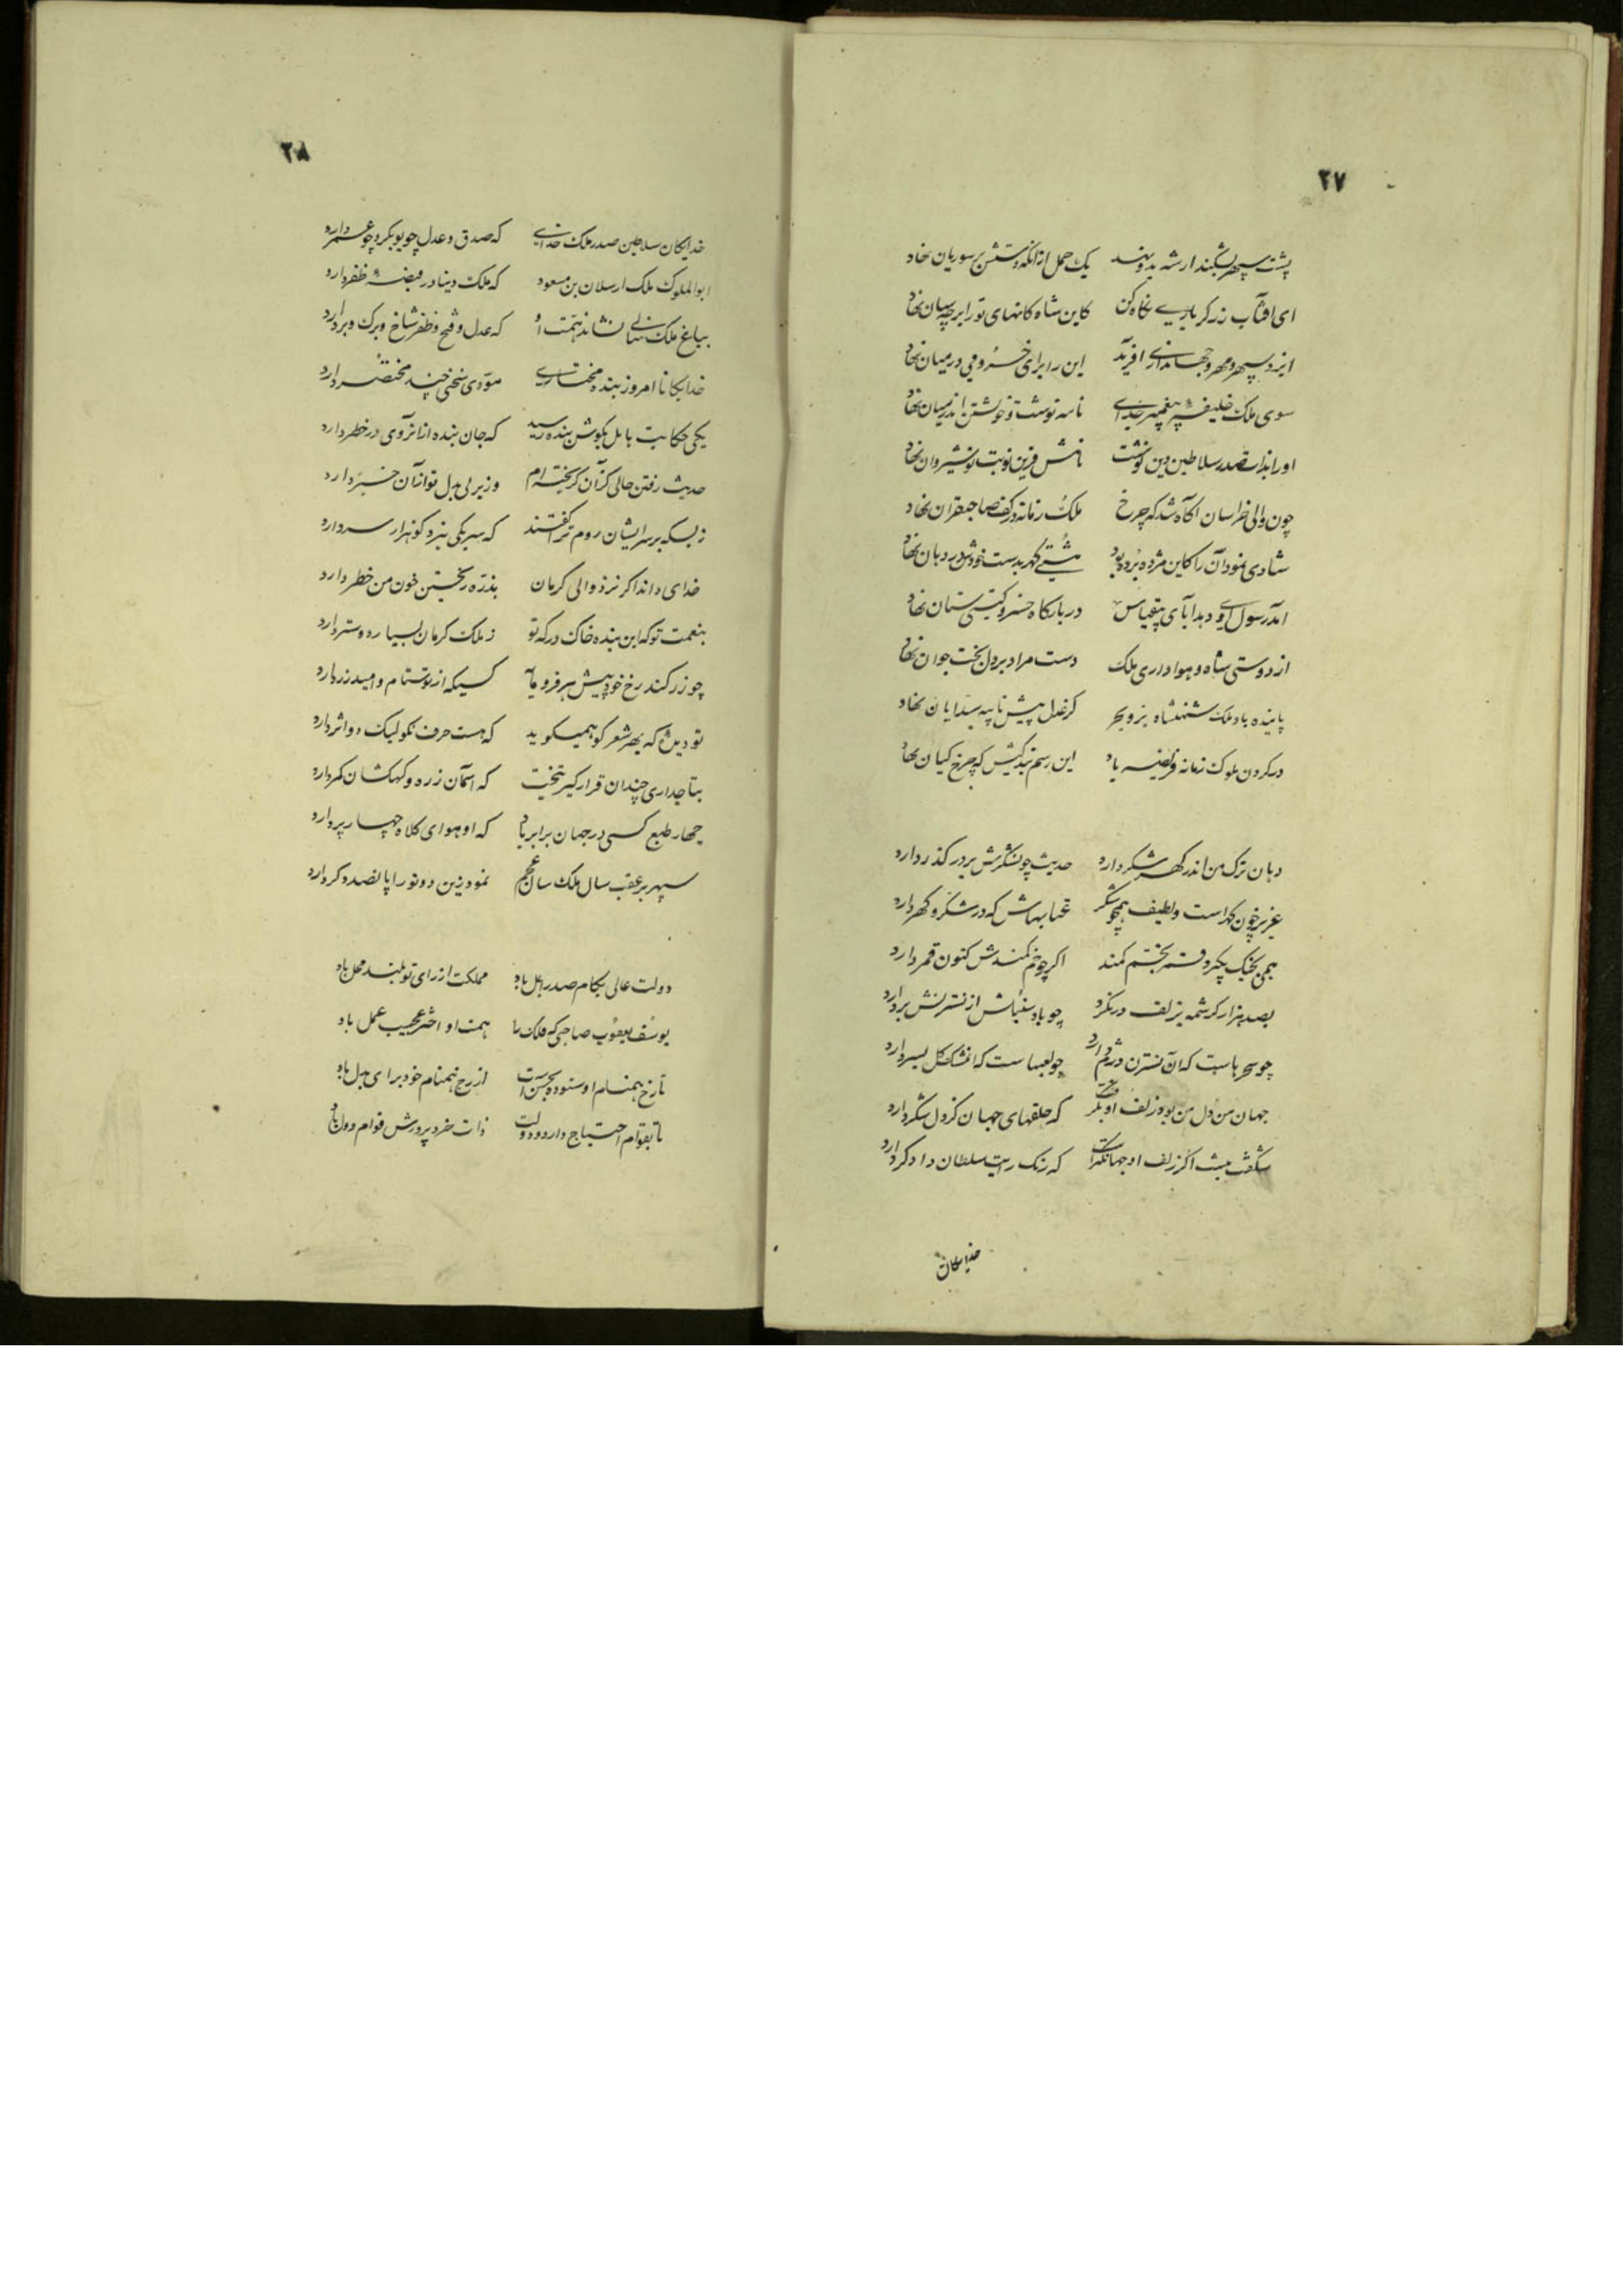 ۲۷
پشت سپهر بشکند ار شه بدو نهد یک حمل ازانکه دستش بر سوریان نهاد
ای افتاب زر کر باری نکاه کن کاین شاه کانهای تو را بر چه سان نهاد
ایزد سپهر و مهر و جهانداری افرید این را برای خسرو می درمیان نهاد
سوی ملک خلیفه پیغمبر خدای نامه نوشت و خویشتن اندر میان نهاد
او را بذات صدر سلاطین دین نوشت نامش قرین نوبت نوشیروان نهاد
چون والی خراسان اکاه شد که چرخ ملک زمانه در کف صاحبقران نهاد
شادی نمود آن را کاین مژده برده بود مشتی کهر بدست خودش در دهان نهاد
امد رسول وی و هدایای بیقیاس در بارکاه خسرو کیتی ستان نهاد
از دوستی شاه و هواداری ملک دست مراد بر دل بخت جوان نهاد
پاینده باد ملک شهنشاه بر و بحر کز عدل پیش نایبه سدایان نهاد
در کردن ملوک زمانه فریضه باد این رسم بندکیش که چرخ کیان نهاد
دهان ترک من اندر کهر شکر دارد حدیث چون شکرش بر درر کذر دارد
عزیز چون کهر است و لطیف همچو شکر عتابهاش که در شکر و کهر دارد
همی بجنک بکیرد قمر بخم کمند اکر چو خم کمندش کنون قمر دارد
بصد هزار کرشمه بزلف در نکرد چو باد سنبلش از نسترنش بر دارد
چو سحرهاست که آن نسترن در شم دارد چو لعبهاست که انمشک کل بسر دارد
جهان من دل من بود زلف او بکرفت که حلقهای جهان کرد دل شکر دارد
شکفت نیست اکر زلف او جهانکیر است که رنک رایت سلطان دادکر دارد
خدایکان
۲۸
خدایکان سلاطین صدر ملک خدای که صدق و عدل چو بوبکر و چو عمر دارد
ابوالملوک ملک ارسلان بن مسعود که ملک دنیا در قبضه ظفر دارد
بباغ ملک نهالی نشاند همت او که عدل و فتح و ظفر شاخ و برک و بر دارد
خدایکانا امروز بنده مختاری مودی سخنی چند مختصر دارد
یکی حکایت بابل بکوش بنده رسید که جان بنده ازانروی در خطر دارد
حدیث رفتن حالی کزآن کریخته‌ام وزیر بی بدل تو ازآن خبر دارد
ز بسکه بر سر ایشان روم ترا کفتند که سر یکی نبرد کو هزار سر دارد
خدای داند اکر نزد والی کرمان بذره ریختن خون من خطر دارد
بنعمت تو که این بنده خاک درکه تو ز ملک کرمان بسیار دوستر دارد
چو زر کند رخ خود پیش هر فرومایه کسیکه از تو ستام و امید زر دارد
تو دیدی که بهر شعر کو همیکوید که هست حرف نکو لیک دو اثر دارد
بتاجداری چندان قرار کیر بتخت که اسمان زره و کهکشان کمر دارد
چهار طبع کسی در جهان برابر باد که او هوای کلاه چهار پر دارد
سپهر بر عقب سال ملک سان عجم نمود زین دو تو را پانصد دکر دارد
دولت عالی بکام صدر اجل باد مملکت از رای تو بلند محل باد
یوسف یعقوب صاحبی که فلک را همت او اختر عجیب عمل باد
تا رخ همنام او ستوده بحسن است از رخ همنام خود برای بدل باد
تا بقوام احتیاج دارد دولت ذات خرد پرورش قوام دول باد